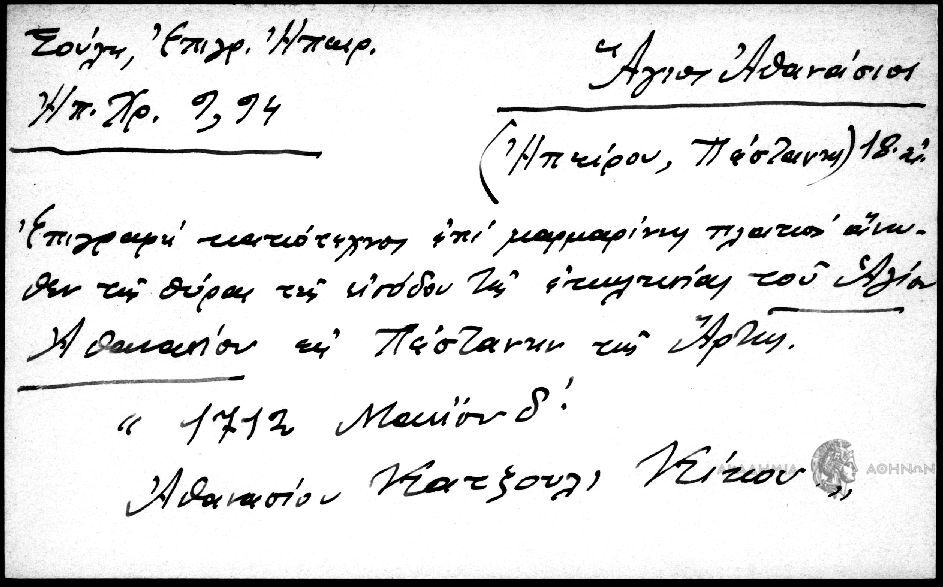 Σούλη, Ἐπιγρ. Ἠπειρ.
Ἠπ. Χρ. 9, 94
Ἅγιος Ἀθανάσιος
(Ἠπείρου, Πέστανη) 18. αἰ.
Ἐπιγραφή κακότεχνος ἐπί μαρμαρίνης πλακός ἄνω-
θεν τῆς θύρας τῆς εἰσόδου τῆς ἐκκλησίας τοῦ Ἁγίου
Ἀθανασίου εἰς Πέστανην τῆς Ἄρτης.
" 1712 Μαΐου δ'.
Ἀθανασίου Κατζουλι Κίτσου "
ΑΚΑΔΗΜΙΑ ΑΘΗΝΩΝ